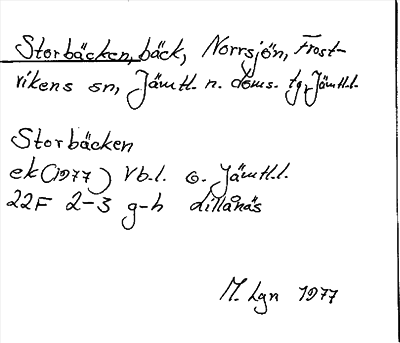 Storbäcken, bäck, Norrsjön, Frost-
vikens sn, Jämtl. n. doms. tg, Jämtl.l.
Storbäcken
ek(1977) Vb.l. o. Jämtl.l.
22F 2-3 g-h Lillånäs
M. Lgn 1977